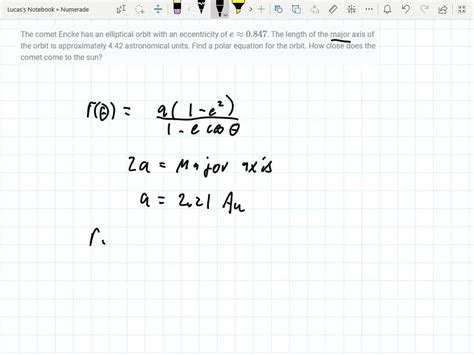 Lucas's Notebook » Numerade
The comet Encke has an elliptical orbit with an eccentricity of e ≈ 0.847. The length of the major axis of
the orbit is approximately 4.42 astronomical units. Find a polar equation for the orbit. How close does the
comet come to the sun?
r(θ) = a(1-e²)
1-e cos θ
2a = Major axis
a = 2.21 Au
r.